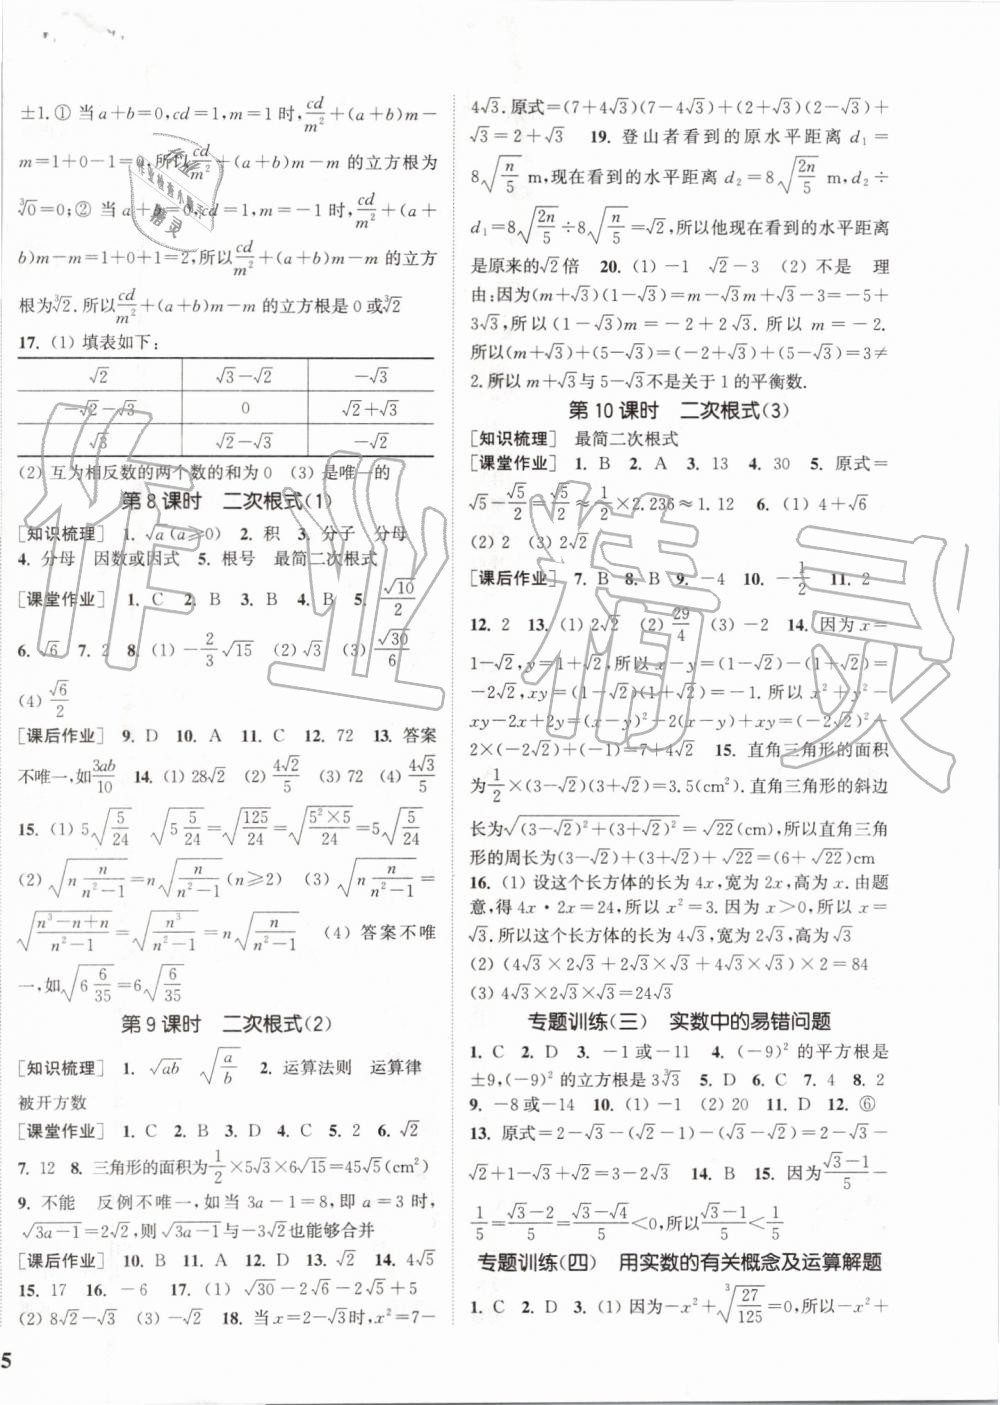 ±1.① 当 a+b=0,cd=1,m=1 时,cd/m²+(a+b)m-
m=1+0-1=0,所以cd/m²+(a+b)m-m 的立方根为
∛0=0;② 当 a+b=0,cd=1,m=-1 时,cd/m²+(a+
b)m-m=1+0+1=2,所以cd/m²+(a+b)m-m 的立方
根为∛2.所以cd/m²+(a+b)m-m 的立方根是 0 或∛2
17. (1) 填表如下:
√2 √3-√2 -√3
-√2-√3 0 √2+√3
√3 √2-√3 -√2
(2) 互为相反数的两个数的和为 0 (3) 是唯一的
第 8 课时 二次根式(1)
[知识梳理] 1. √a (a≥0) 2. 积 3. 分子 分母
4. 分母 因数或因式 5. 根号 最简二次根式
[课堂作业] 1. C 2. B 3. B 4. B 5. √10/2
6. √6 7. 2 8. (1) -2/3√15 (2) √3 (3) √30/6
(4) √6/2
[课后作业] 9. D 10. A 11. C 12. 72 13. 答案
不唯一,如3ab/10 14. (1) 28√2 (2) 4√2/5 (3) 72 (4) 4√3/5
15. (1) 5√(5/24) √(5 5/24)=√(125/24)=√(5²×5/24)=5√(5/24)
(2) √(n n/(n²-1))=n√(n/(n²-1)) (n≥2) (3) √(n n/(n²-1))=
√((n³-n+n)/(n²-1))=√(n³/(n²-1))=n√(n/(n²-1)) (4) 答案不唯
一,如√(6 6/35)=6√(6/35)
第 9 课时 二次根式(2)
[知识梳理] 1. √ab √(a/b) 2. 运算法则 运算律
被开方数
[课堂作业] 1. C 2. B 3. D 4. C 5. 2 6. √2
7. 12 8. 三角形的面积为1/2×5√3×6√15=45√5(cm²)
9. 不能 反例不唯一,如当 3a-1=8,即 a=3 时,
√(3a-1)=2√2,则√(3a-1)与-3√2也能够合并
[课后作业] 10. B 11. A 12. D 13. √2 14. 4√5
15. 17 16. -6 17. (1) √30-2√6-2√5+5
(2) 8√2-√3 (3) -√2 18. 当 x=2-√3时,x²=7-
5
4√3.原式=(7+4√3)(7-4√3)+(2+√3)(2-√3)+
√3=2+√3 19. 登山者看到的原水平距离 d₁=
8√(n/5) m,现在看到的水平距离 d₂=8√(2n/5) m,d₂÷
d₁=8√(2n/5)÷8√(n/5)=√2,所以他现在看到的水平距离
是原来的√2倍 20. (1) -1 √2-3 (2) 不是 理
由:因为(m+√3)(1-√3)=m-√3m+√3-3=-5+
3√3,所以(1-√3)m=-2+2√3.所以 m=-2.
所以(m+√3)+(5-√3)=(-2+√3)+(5-√3)=3≠
2.所以 m+√3与 5-√3不是关于 1 的平衡数.
第 10 课时 二次根式(3)
[知识梳理] 最简二次根式
[课堂作业] 1. B 2. A 3. 13 4. 30 5. 原式=
√5-√5/2=√5/2≈1/2×2.236≈1.12 6. (1) 4+√6
(2) 2 (3) 2√2
[课后作业] 7. B 8. B 9. -4 10. -1/2 11. 2
12. 2 13. (1) 2√2 (2) 29/4 (3) -2 14. 因为 x=
1-√2,y=1+√2,所以 x-y=(1-√2)-(1+√2)=
-2√2,xy=(1-√2)(1+√2)=-1.所以 x²+y²-
xy-2x+2y=(x-y)²-2(x-y)+xy=(-2√2)²-
2×(-2√2)+(-1)=7+4√2 15. 直角三角形的面积
为1/2×(3-√2)(3+√2)=3.5(cm²).直角三角形的斜边
长为√((3-√2)²+(3+√2)²)=√22(cm),所以直角三角
形的周长为(3-√2)+(3+√2)+√22=(6+√22)cm
16. (1) 设这个长方体的长为 4x,宽为 2x,高为 x.由题
意,得 4x·2x=24,所以 x²=3.因为 x>0,所以 x=
√3.所以这个长方体的长为 4√3,宽为 2√3,高为√3
(2) (4√3×2√3+2√3×√3+4√3×√3)×2=84
(3) 4√3×2√3×√3=24√3
专题训练(三) 实数中的易错问题
1. C 2. D 3. -1或-11 4. (-9)² 的平方根是
±9,(-9)² 的立方根是 3∛3 5. D 6. C 7. 4 8. 2
9. -8或-14 10. (1) -1 (2) 20 11. D 12. ⑥
13. 原式=2-√3-(√2-1)-(√3-√2)=2-√3-
√2+1-√3+√2=3-2√3 14. B 15. 因为(√3-1)/5-
1/5=(√3-2)/5=(√3-√4)/5<0,所以(√3-1)/5<1/5
专题训练(四) 用实数的有关概念及运算解题
1. C 2. D 3. (1) 因为-x²+∛(27/125)=0,所以-x²+